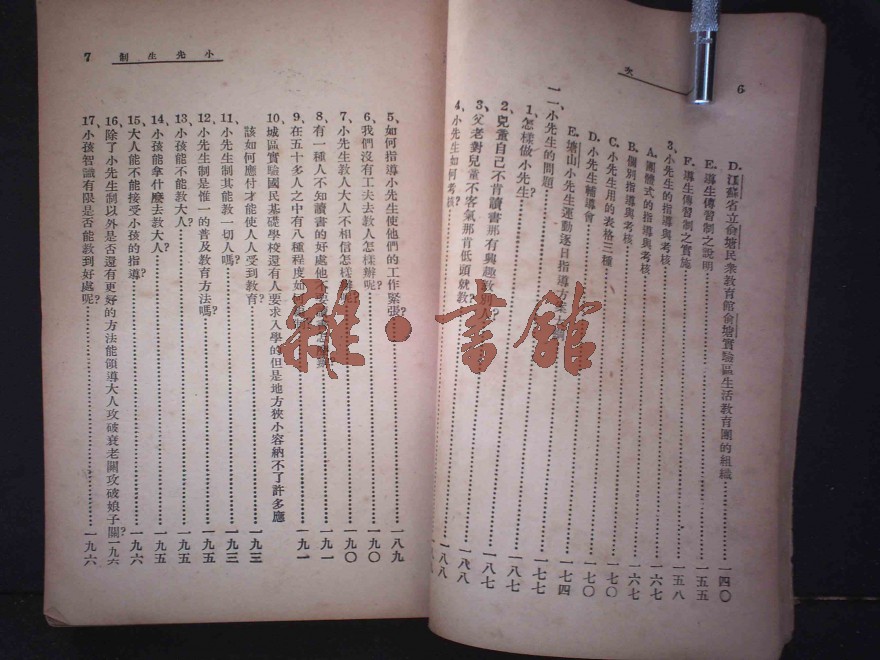 6
次
D. 江蘇省立俞塘民衆教育館俞塘實驗區生活教育團的組織 一四〇
E. 導生傳習制之說明 一五五
F. 導生傳習制之實施 一五八
3、小先生的指導與考核 一六七
A. 團體式的指導與考核 一六七
B. 個別指導與考核 一六七
C. 小先生用的表格三種 一七〇
D. 小先生輔導會 一七〇
E. 塘山小先生運動逐日指導方案 一七四
一一、小先生的問題 一七七
1、怎樣做小先生? 一八七
2、兒童自己不肯讀書那有興趣教別人? 一八七
3、父老對兒童不客氣那肯低頭就教? 一八八
4、小先生如何考核? 一八八
7
小先生制
5、如何指導小先生使他們的工作緊張? 一八九
6、我們沒有工夫去教人怎樣辦呢? 一九〇
7、小先生教人大人不相信怎樣辦呢? 一九〇
8、有一種人不知讀書的好處他不要 一九一
9、在五十多人之中有八種程度如何 一九一
10、城區實驗國民基礎學校還有人要求入學的但是地方狹小容納不了許多應
該如何應付才能使人人受到教育? 一九三
11、小先生制其能教一切人嗎? 一九三
12、小先生制是惟一的普及教育方法嗎? 一九五
13、小孩能不能教大人? 一九五
14、小孩能拿什麼去教大人? 一九五
15、大人能不能接受小孩的指導? 一九六
16、除了小先生制以外是否還有更好的方法能領導大人攻破衰老關攻破娘子關? 一九六
17、小孩智識有限是否能教到好處呢? 一九六
雜·書館